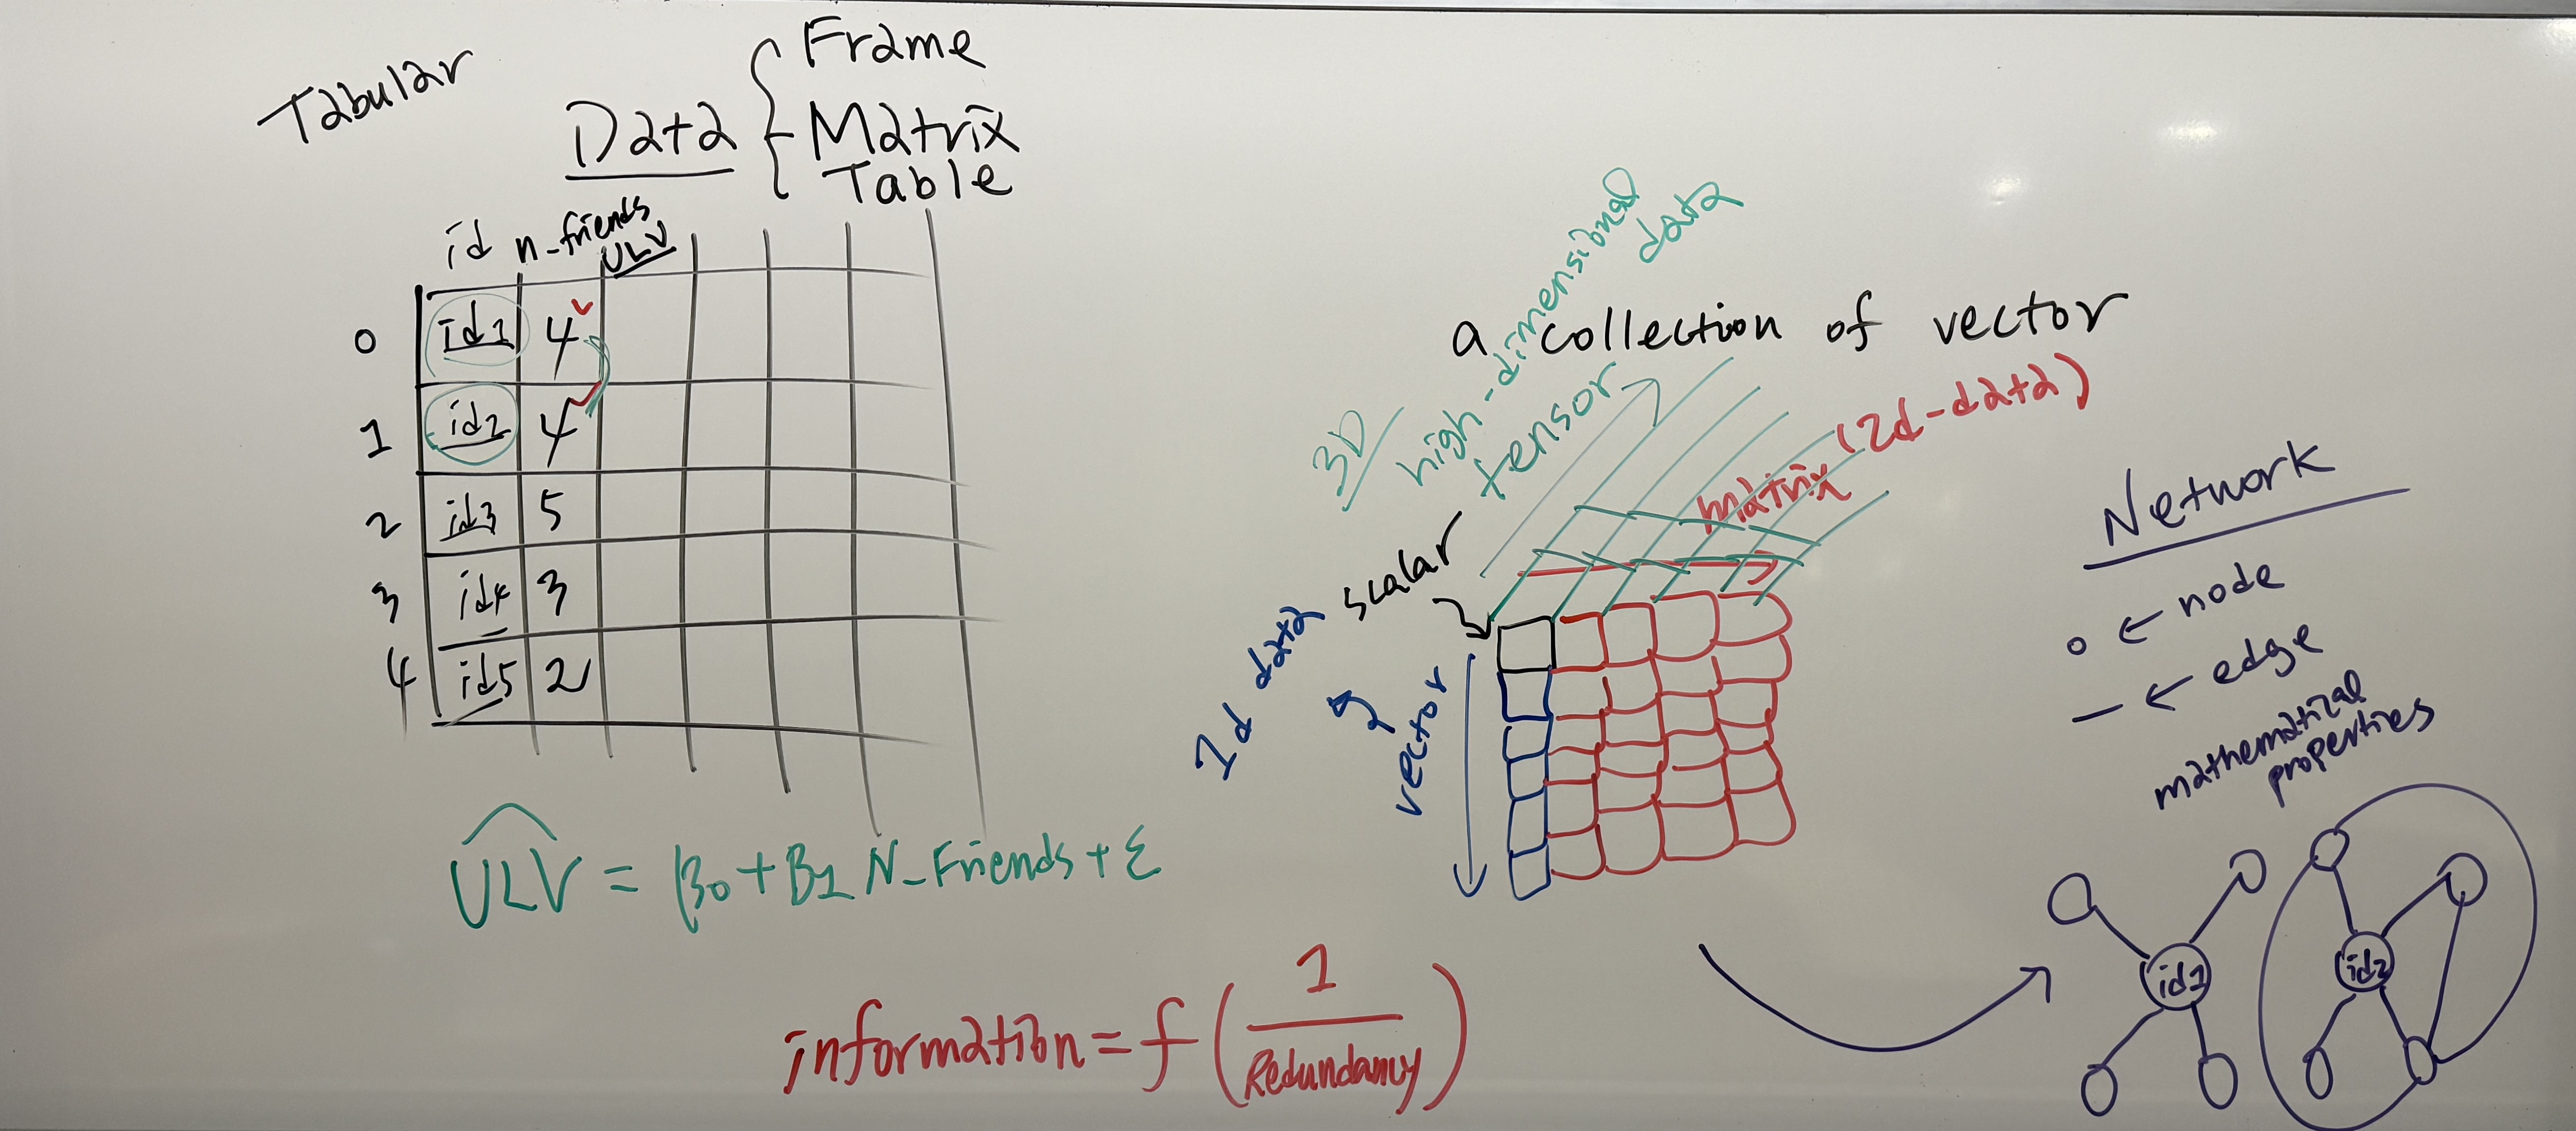 Tabular
Data { Frame
Matrix
Table
id n-friends ULV
0 id1 4
1 id2 4
2 id3 5
3 id4 3
4 id5 2
ULV = β0 + B1 N-Friends + ε
information = f ( 1 / Redundancy )
a collection of vector
3D
high-dimensional data
tensor
matrix (2d-data)
scalar
1d data
vector
Network
node
edge
mathematical
properties
id1
id2